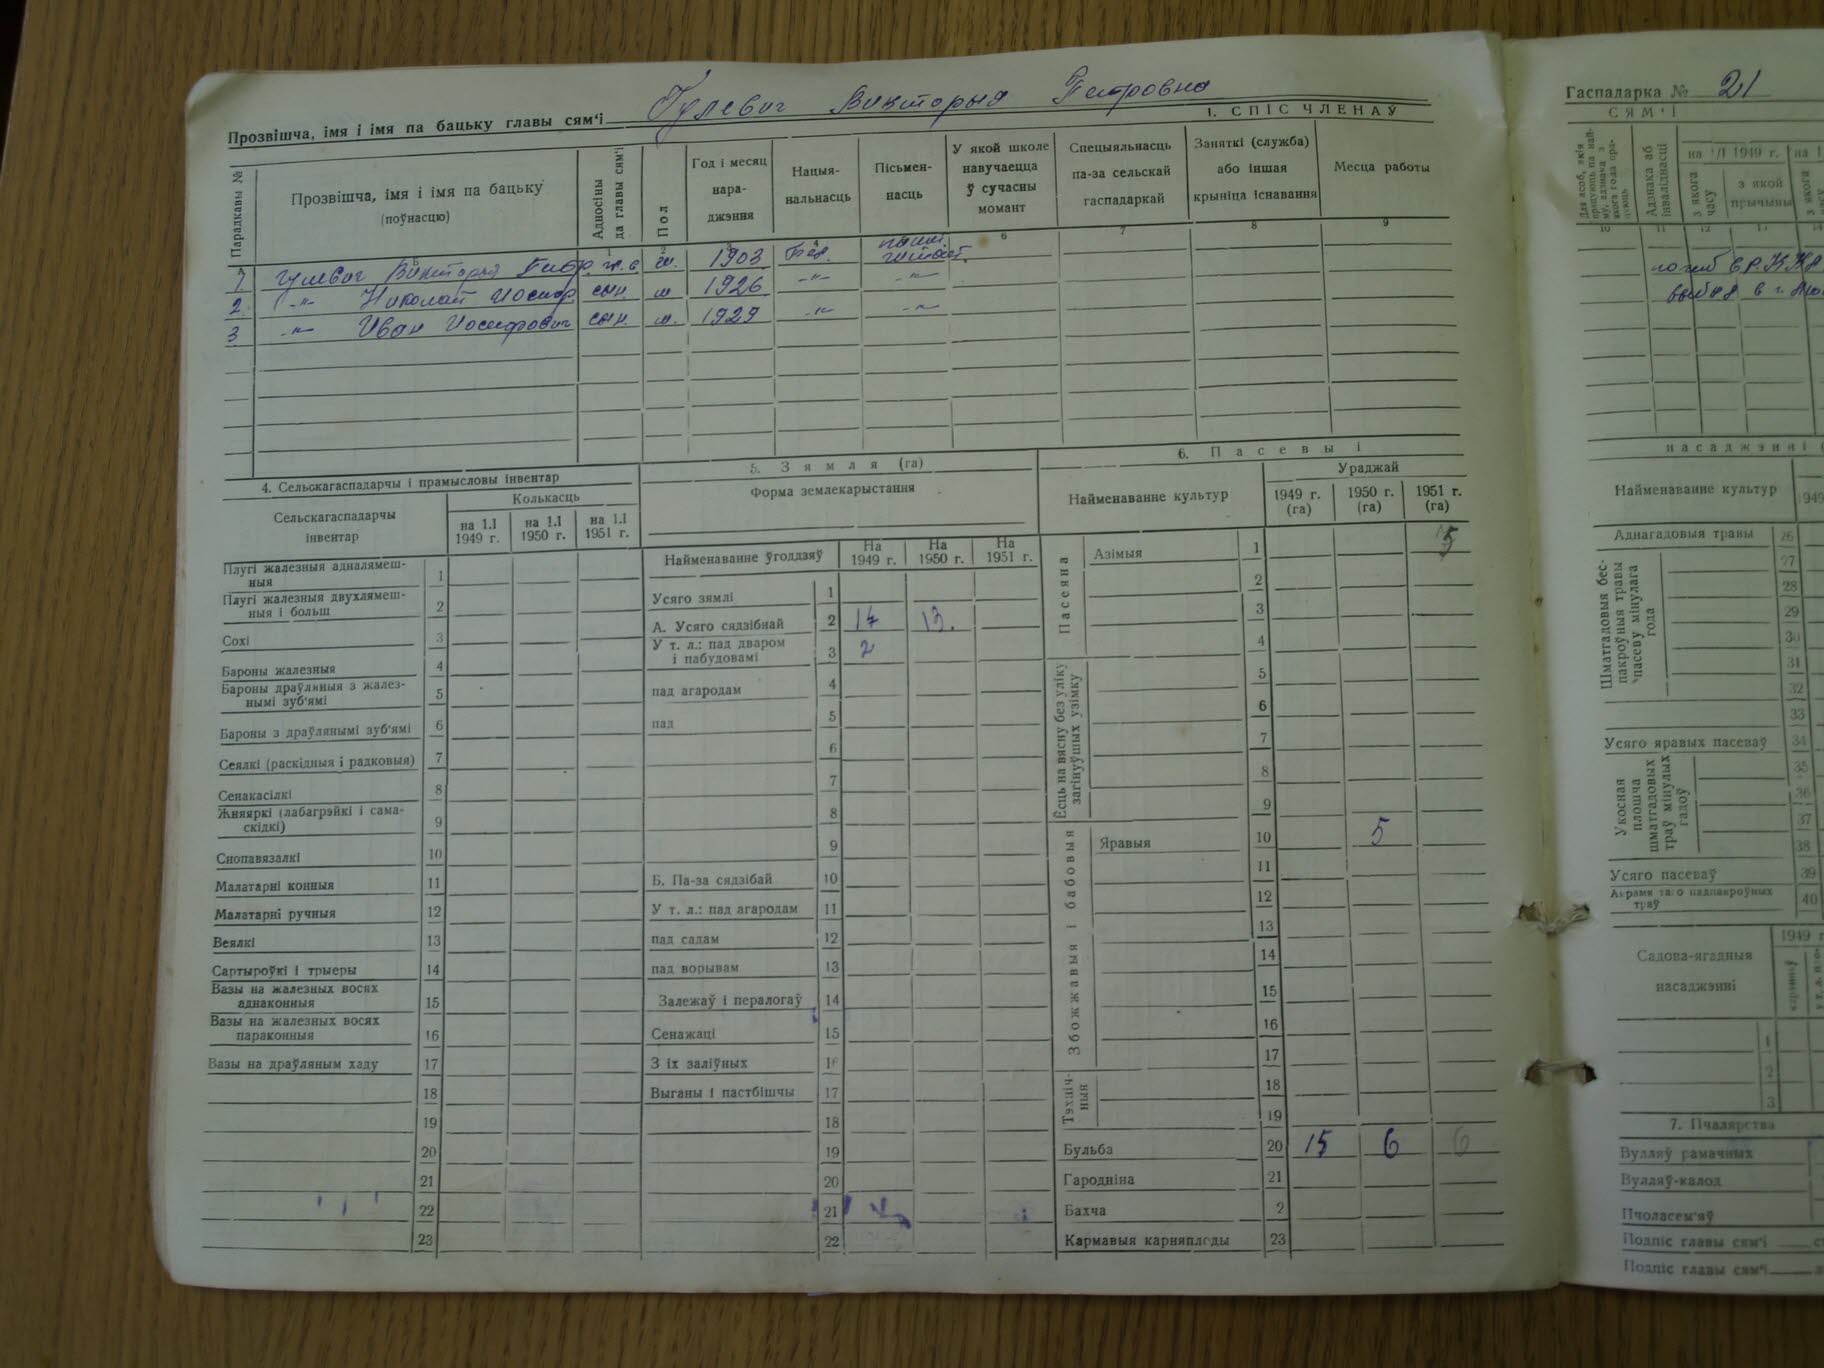 Прозвішча, імя і імя па бацьку главы сям'і Гулевич Викторыя Петровна
І. СПІС ЧЛЕНАЎ
Парадкавы №
Прозвішча, імя і імя па бацьку (поўнасцю)
Адносіны да главы сям'і
Пол
Год і месяц нараджэння
Нацыянальнасць
Пісьменнасць
У якой школе навучаецца ў сучасны момант
Спецыяльнасць па-за сельскай гаспадаркай
Заняткі (служба) або іншая крыніца існавання
Месца работы
6 7 8 9
1. Гулевич Викторыя Петр. гл. с. ж. 1903 Бел.
2. -"- Николай Иосиф. сын. м. 1926 -"- -"-
3 -"- Иван Иосифович сын. м. 1929 -"- -"-
4. Сельскагаспадарчы і прамысловы інвентар
Сельскагаспадарчы інвентар
Колькасць
на 1.І 1949 г. на 1.І 1950 г. на 1.І 1951 г.
Плугі жалезныя адналямешныя 1
Плугі жалезныя двухлямешныя і больш 2
Сохі 3
Бароны жалезныя 4
Бароны драўляныя з жалезнымі зуб'ямі 5
Бароны з драўлянымі зуб'ямі 6
Сеялкі (раскідныя і радковыя) 7
Сенакасілкі 8
Жняяркі (лабагрэйкі і самаскідкі) 9
Снопавязалкі 10
Малатарні конныя 11
Малатарні ручныя 12
Веялкі 13
Сартыроўкі і трыеры 14
Вазы на жалезных восях аднаконныя 15
Вазы на жалезных восях параконныя 16
Вазы на драўляным хаду 17
18
19
20
21
22
23
5. Зямля (га)
Форма землекарыстання
Найменаванне ўгоддзяў На 1949 г. На 1950 г. На 1951 г.
Усяго зямлі 1
А. Усяго сядзібнай 2 14 13.
У т. л.: пад дваром і пабудовамі 3 2
пад агародам 4
пад 5
6
7
8
9
Б. Па-за сядзібай 10
У т. л.: пад агародам 11
пад садам 12
пад ворывам 13
Залежаў і пералогаў 14
Сенажаці 15
З іх заліўных 16
Выганы і пастбішчы 17
18
19
20
21
22
6. Пасевы і
Найменаванне культур
Ураджай
1949 г. (га) 1950 г. (га) 1951 г. (га)
Пасеяна
Азімыя 1 5
2
3
4
Ёсць на вясну без уліку загінуўшых узімку
5
6
7
8
9
Збожжавыя і бабовыя
Яравыя 10 5
11
12
13
14
15
16
17
Тэхнічныя
18
19
Бульба 20 15 6 6
Гародніна 21
Бахча 2
Кармавыя карняплоды 23
Гаспадарка № 21
СЯМ'І
Адзнака аб інваліднасці
на 1/І 1949 г.
з якога часу
з якой прычыны
10 11 12 13
насаджэнні
Найменаванне культур
Аднагадовыя травы 26
Шматгадовыя беспакроўныя травы пасеву мінулага года
27
28
29
30
31
32
33
Усяго яравых пасеваў 34
Укосная плошча шматгадовых траў мінулых гадоў
35
36
37
38
Усяго пасеваў 39
Акрамя таго падпакроўных траў 40
Садова-ягадныя насаджэнні
1949 г.
1
2
3
7. Пчалярства
Вулляў рамачных
Вулляў-калод
Пчоласем'яў
Подпіс главы сям'і
Подпіс главы сям'і